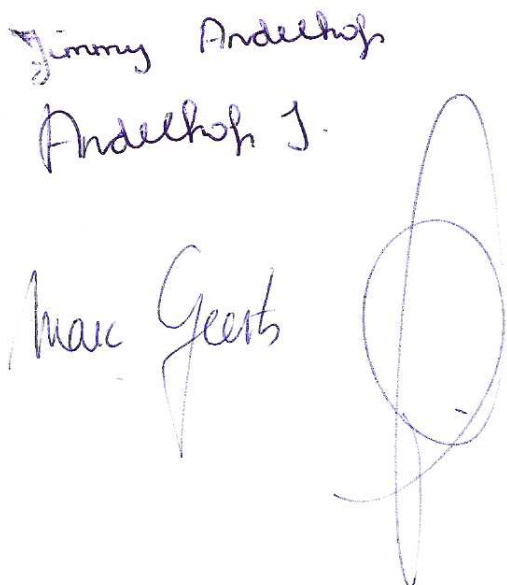 Jimmy Andelhofs
Andelhofs J.
Marc Geerts